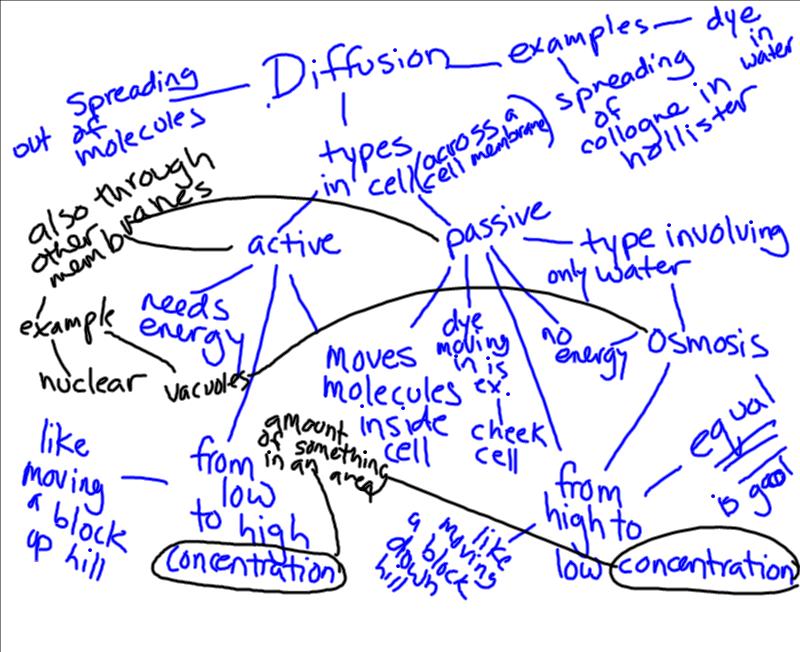 Diffusion
Spreading
out of
molecules
examples
dye
in
water
spreading
of
collogne in
hollister
types
in cell
(across a
cell membrane)
also through
other
membranes
example
nuclear
vacuoles
active
needs
energy
moves
molecules
inside
cell
from
low
to high
concentration
like
moving
a block
up hill
amount
of something
in an area
passive
type involving
only water
Osmosis
no
energy
dye
moving
in is
ex.
cheek
cell
from
high to
low concentration
like
moving
a block
down
hill
equal
is goal